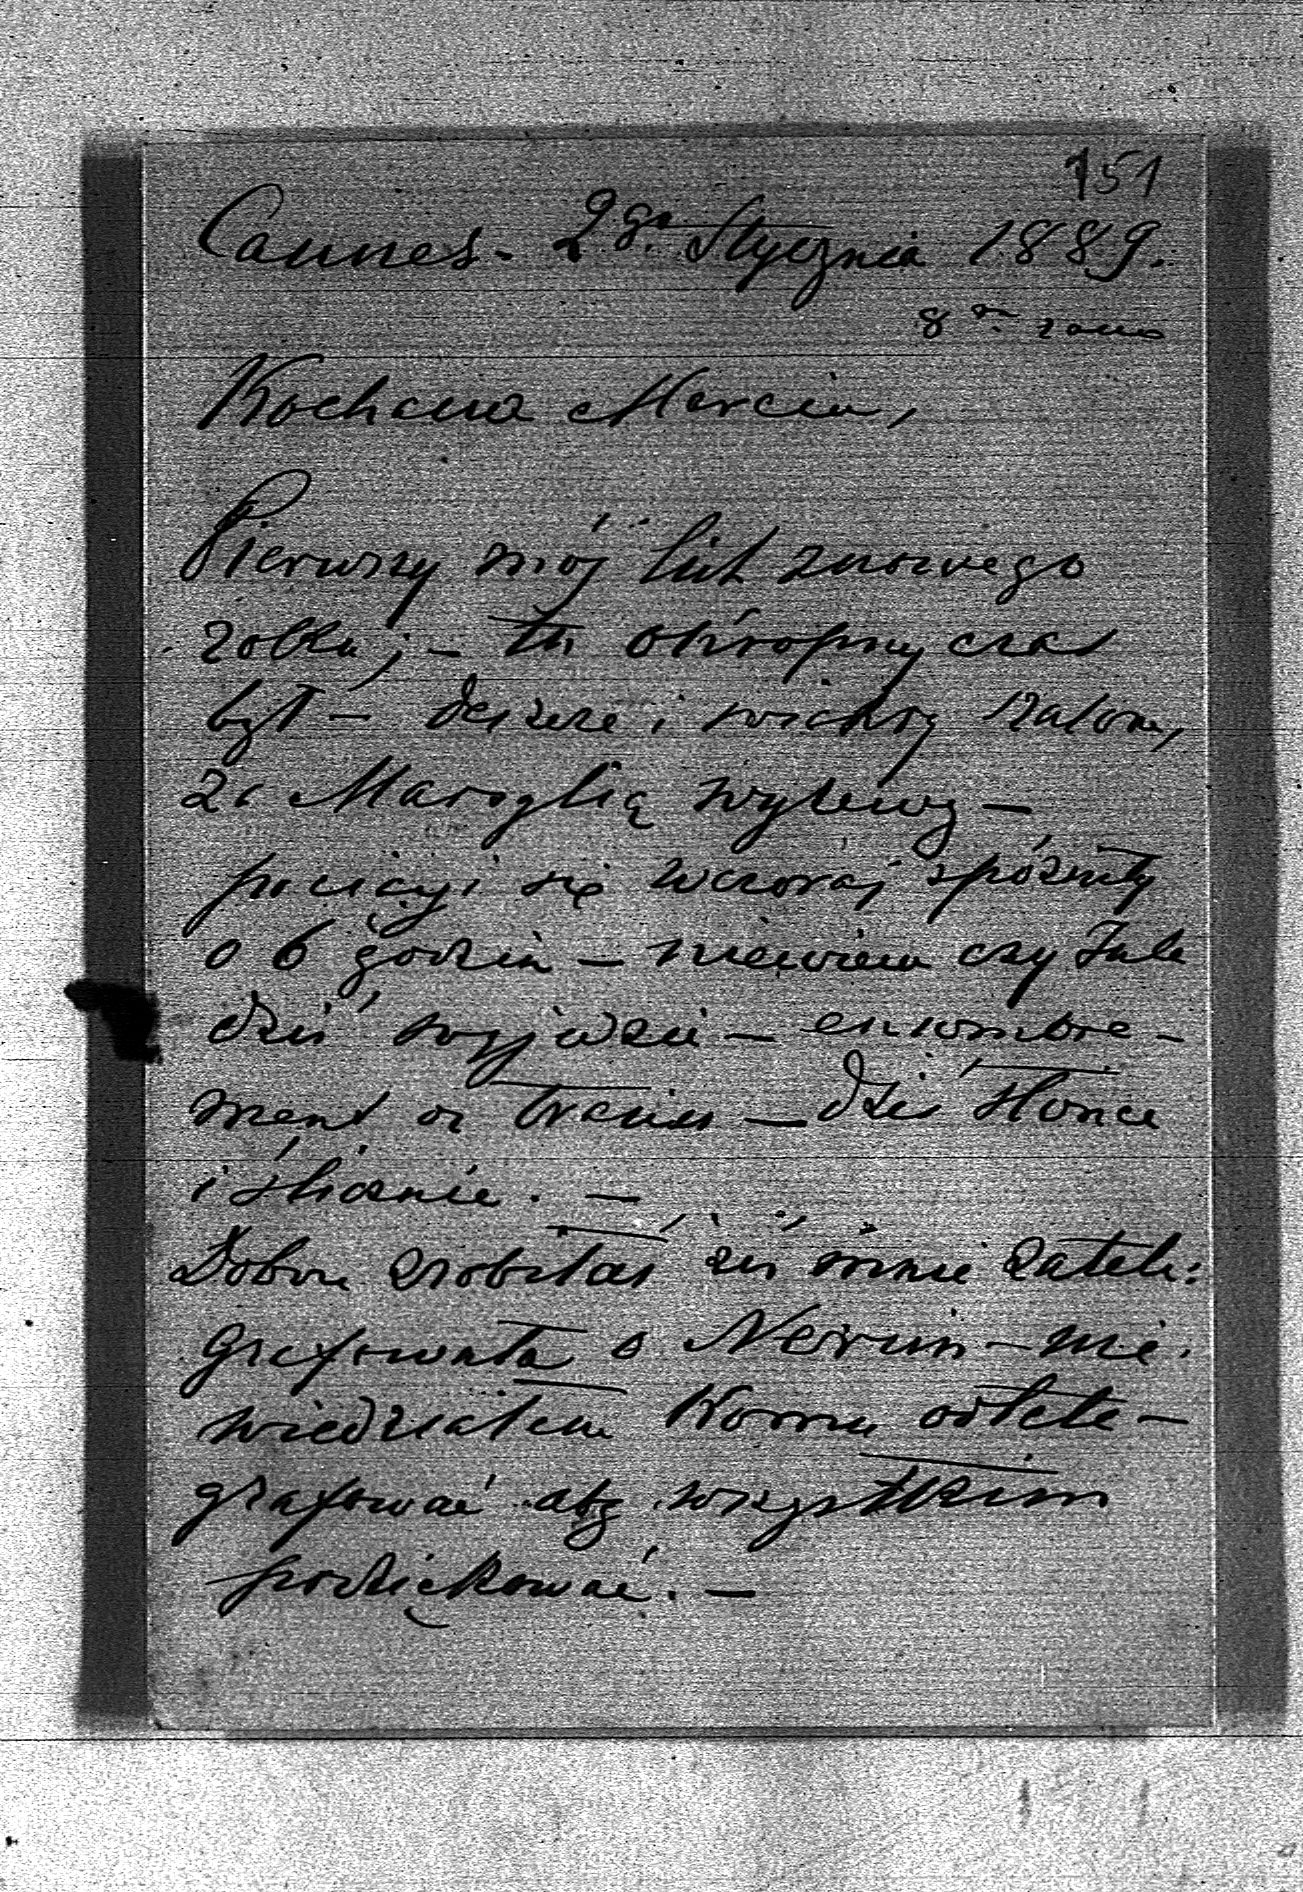 151
Cannes - 2go Stycznia 1889.
8a rano
Kochana Marciu,
Pierwszy mój list z nowego
roku; - tu okropny czas
był - deszcze i wichry
za Marsylią wylewy -
pociągi się wczoraj spóźniły
o 6 godzin - niewiem czy
dziś wyjedzie - encombre-
ment of trains - dziś słońce
i ślicznie. -
Dobrze zrobiłaś żeś mnie zatele:
grafowała o - nie
wiedziałem komu odtele-
grafować aby wszystkim
podziękować. -